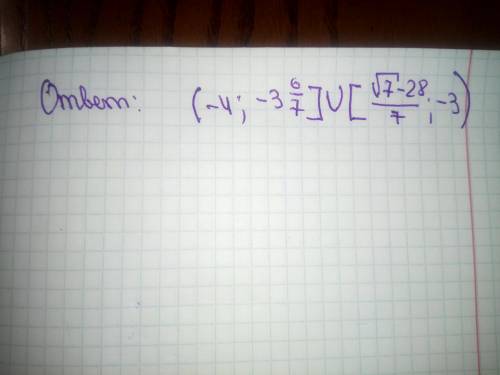 Ответ: (-4; -3 6/7] ∪ [(√7-28)/7; -3)